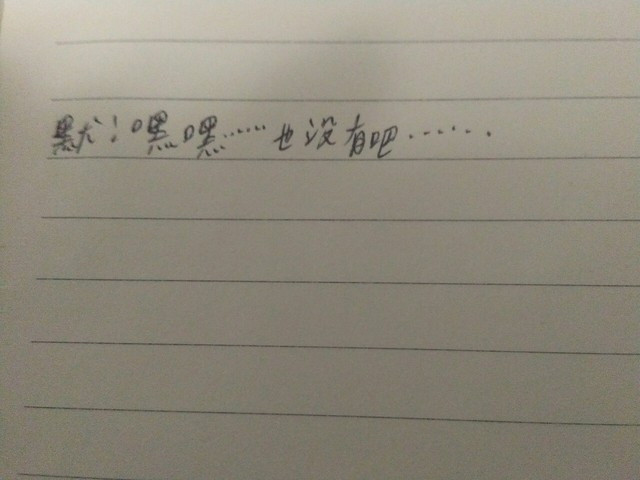 默！嘿嘿……也没有吧……